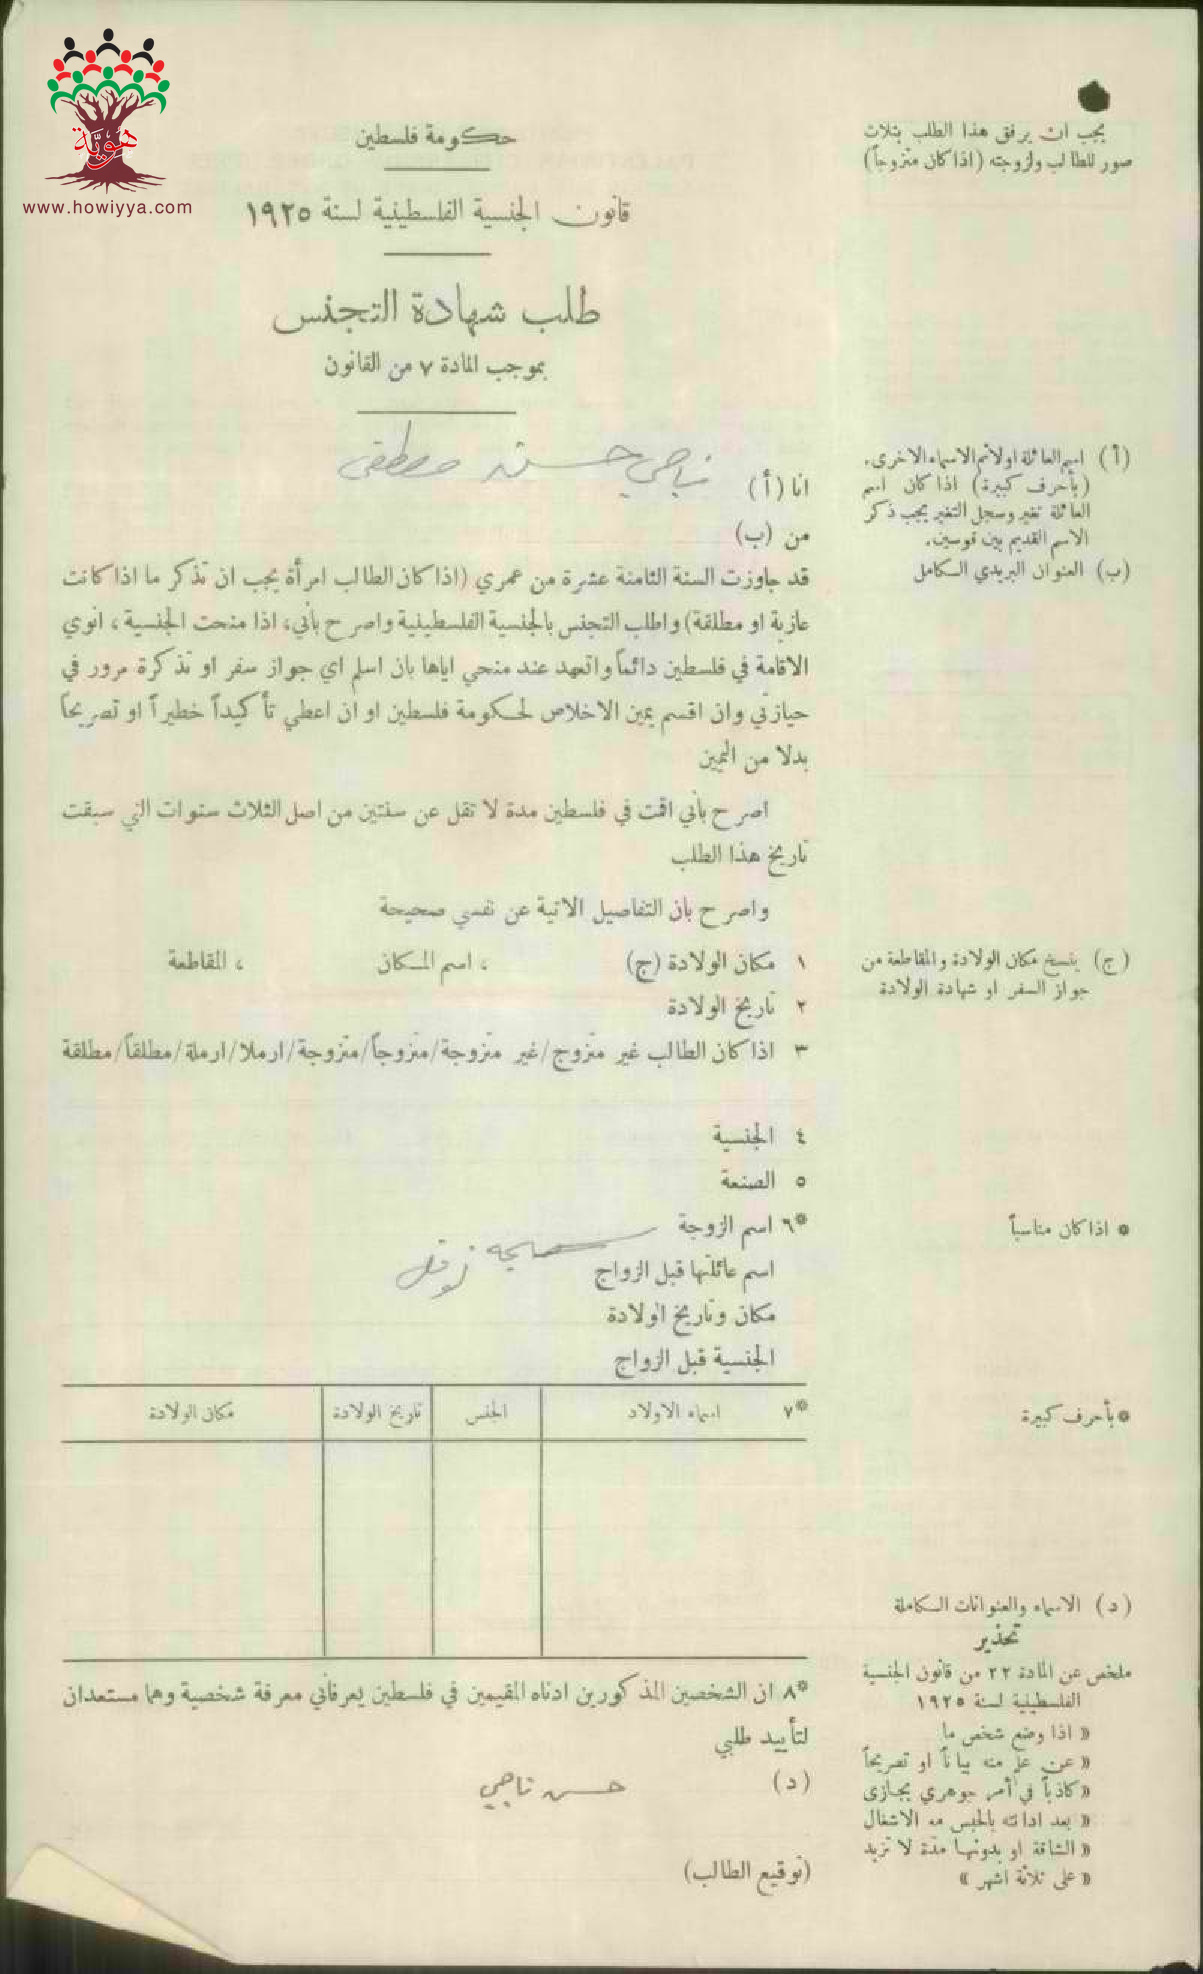 هوية
www.howiyya.com
يجب ان يرفق هذا الطلب بثلاث
صور للطالب ولزوجته (اذا كان متزوجاً)
حكومة فلسطين
قانون الجنسية الفلسطينية لسنة ١٩٢٥
طلب شهادة التجنس
بموجب المادة ٧ من القانون
(أ) اسم العائلة اولا ثم الاسماء الاخرى.
(بأحرف كبيرة) اذا كان اسم
العائلة تغير وسجل التغير يجب ذكر
الاسم القديم بين قوسين.
(ب) العنوان البريدي الكامل
انا (أ) ناجي حسن مصطفى
من (ب)
قد جاوزت السنة الثامنة عشرة من عمري (اذا كان الطالب امرأة يجب ان تذكر ما اذا كانت
عازبة او مطلقة) واطلب التجنس بالجنسية الفلسطينية واصرح بأني، اذا منحت الجنسية، انوي
الاقامة في فلسطين دائماً واتعهد عند منحي اياها بان اسلم اي جواز سفر او تذكرة مرور في
حيازتي وان اقسم يمين الاخلاص لحكومة فلسطين او ان اعطي تأكيداً خطيراً او تصريحاً
بدلا من اليمين
اصرح بأني اقمت في فلسطين مدة لا تقل عن سنتين من اصل الثلاث سنوات التي سبقت
تاريخ هذا الطلب
واصرح بان التفاصيل الاتية عن نفسي صحيحة
(ج) ينسخ مكان الولادة والمقاطعة من
جواز السفر او شهادة الولادة
١ مكان الولادة (ج) ، اسم المكان ، المقاطعة
٢ تاريخ الولادة
٣ اذا كان الطالب غير متزوج/غير متزوجة/متزوجاً/متزوجة/ارملا/ارملة/مطلقاً/مطلقة
٤ الجنسية
٥ الصنعة
* اذا كان مناسباً
*٦ اسم الزوجة
اسم عائلتها قبل الزواج نوفل
مكان وتاريخ الولادة
الجنسية قبل الزواج
*بأحرف كبيرة
*٧ اسماء الاولاد الجنس تاريخ الولادة مكان الولادة
(د) الاسماء والعنوانات الكاملة
تحذير
ملخص عن المادة ٢٢ من قانون الجنسية
الفلسطينية لسنة ١٩٢٥
« اذا وضع شخص ما
« عن علم منه بياناً او تصريحاً
« كاذباً في أمر جوهري يجازى
« بعد ادانته بالحبس مع الاشغال
« الشاقة او بدونها مدة لا تزيد
« على ثلاثة اشهر »
*٨ ان الشخصين المذكورين ادناه المقيمين في فلسطين يعرفاني معرفة شخصية وهما مستعدان
لتأييد طلبي
(د) حسن ناجي
(توقيع الطالب)